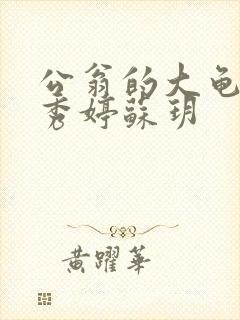 公翁的大龟
秀婷蘇玥
黄躍華